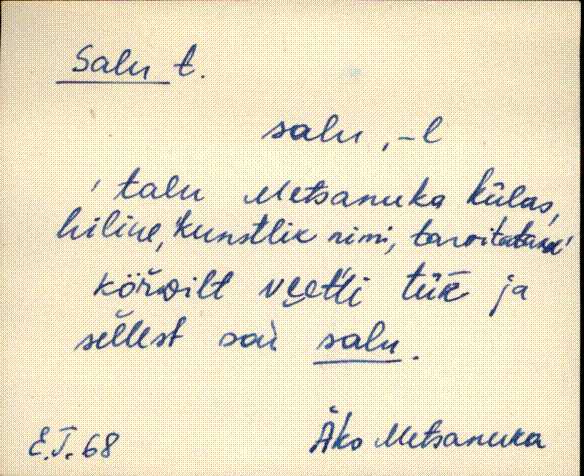 Salu t.
salu, -l
talu Metsanuka külas,
hiline, kunstlik nimi,
kõrvilt veetti tük ja
sellest sai salu.
E.T. 68 Äko Metsanuka